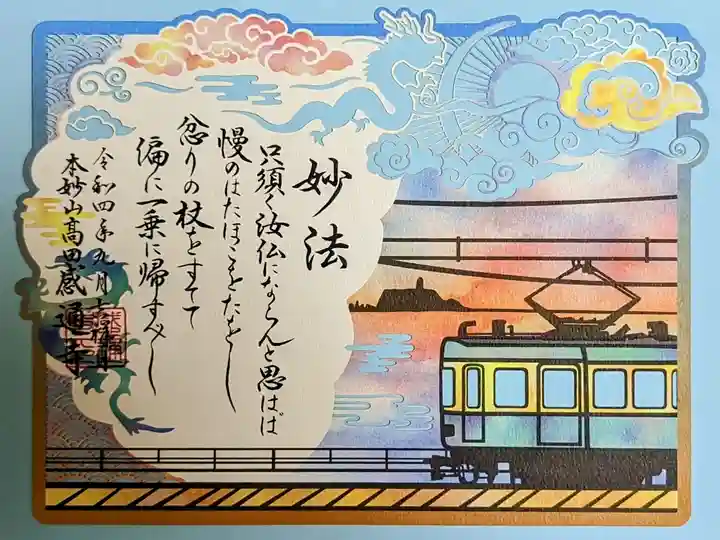 妙法
只須く汝仏にならんと思はゞ
慢のはたほこをたをし
忿りの杖をすてて
偏に一乗に帰すべし
令和四年九月吉祥日
本妙山高田感通寺